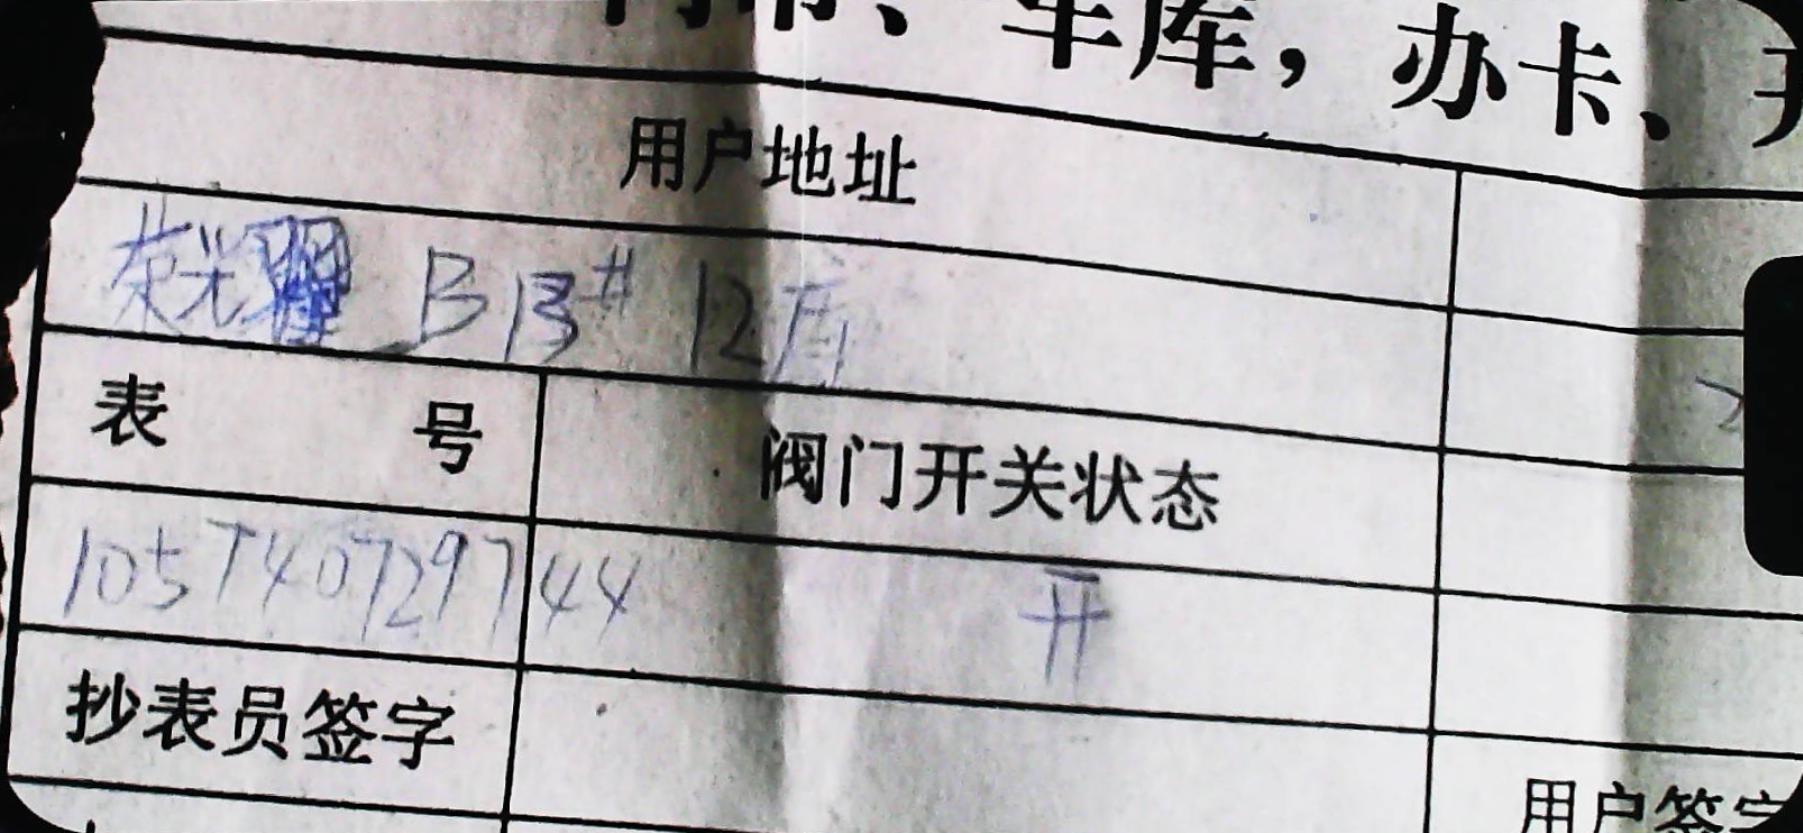 车库，办卡、
用户地址
荣光 B13# 12店
表 号
阀门开关状态
105740729744
开
抄表员签字
用户签字